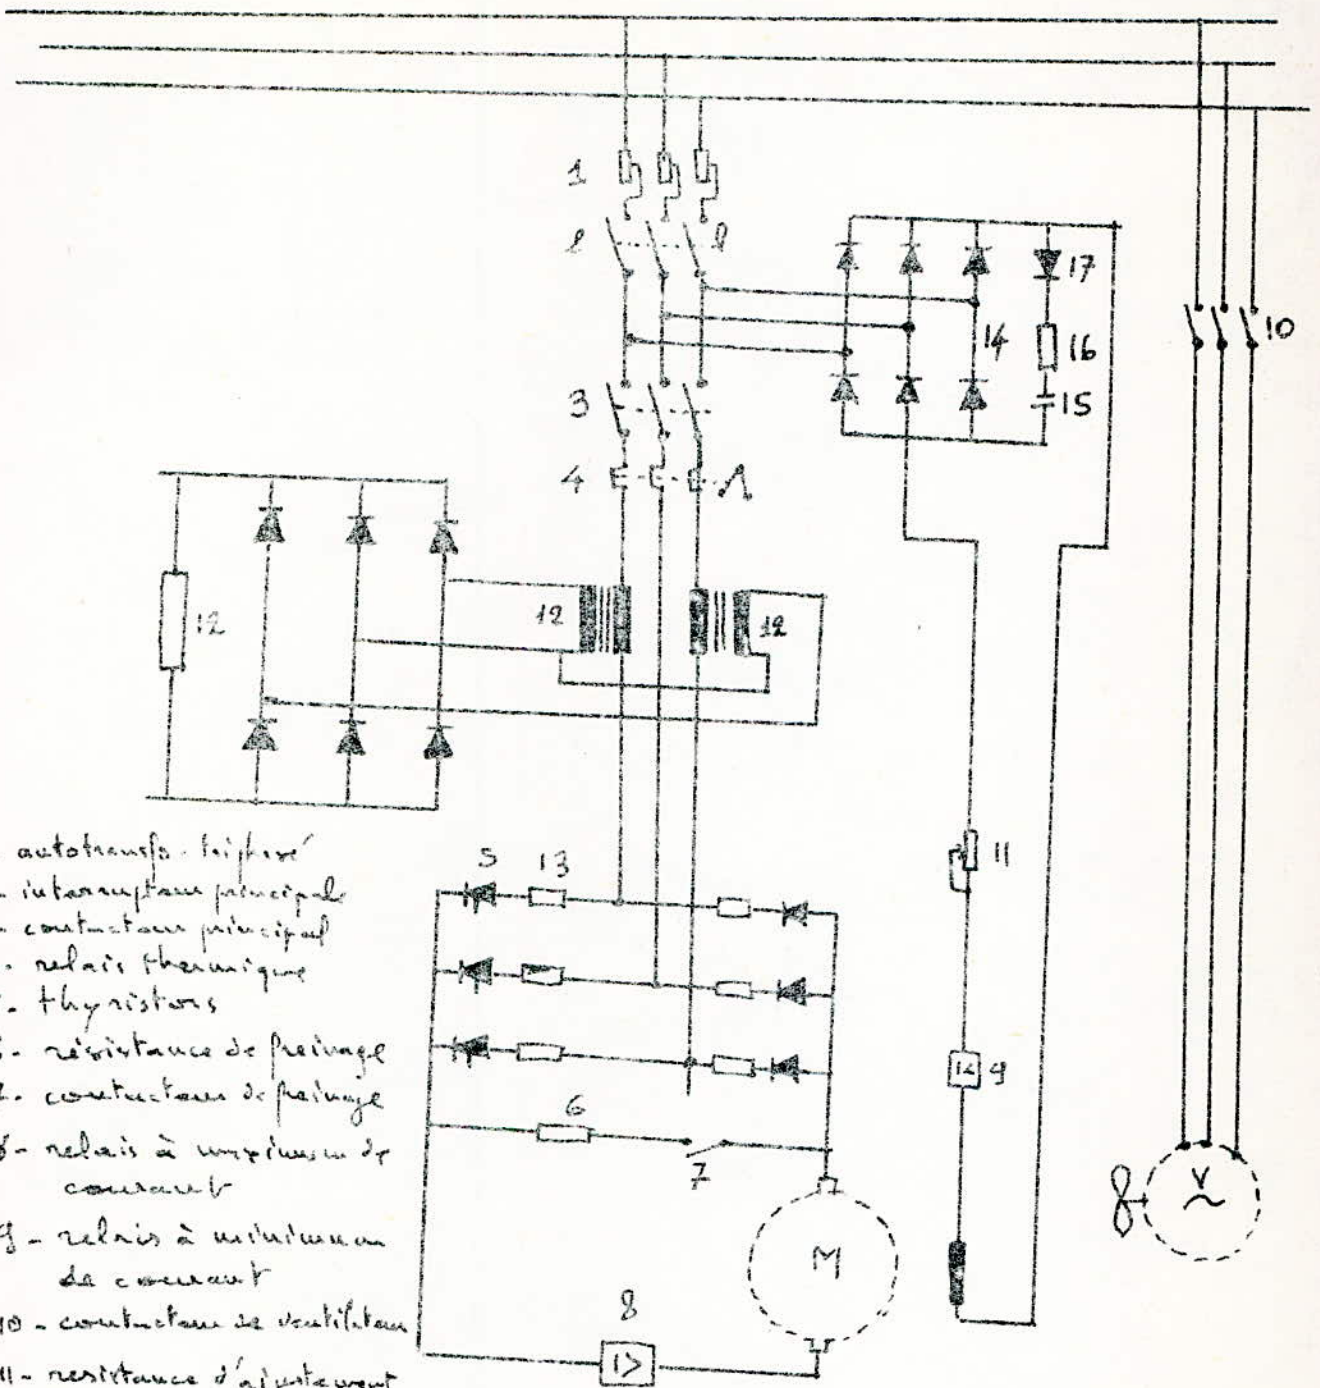 1
2
3
4
17
14
16
15
10
12
12
12
5
13
11
9
6
7
M
V
8
I>
I<
- autotransfo-triphasé
- interrupteur principale
- contacteur principal
- relais thermique
- thyristors
- résistance de freinage
- contacteur de freinage
8- relais à maximum de
courant
9- relais à minimum
de courant
10- contacteur de ventilateur
11- resistance d'ajustement